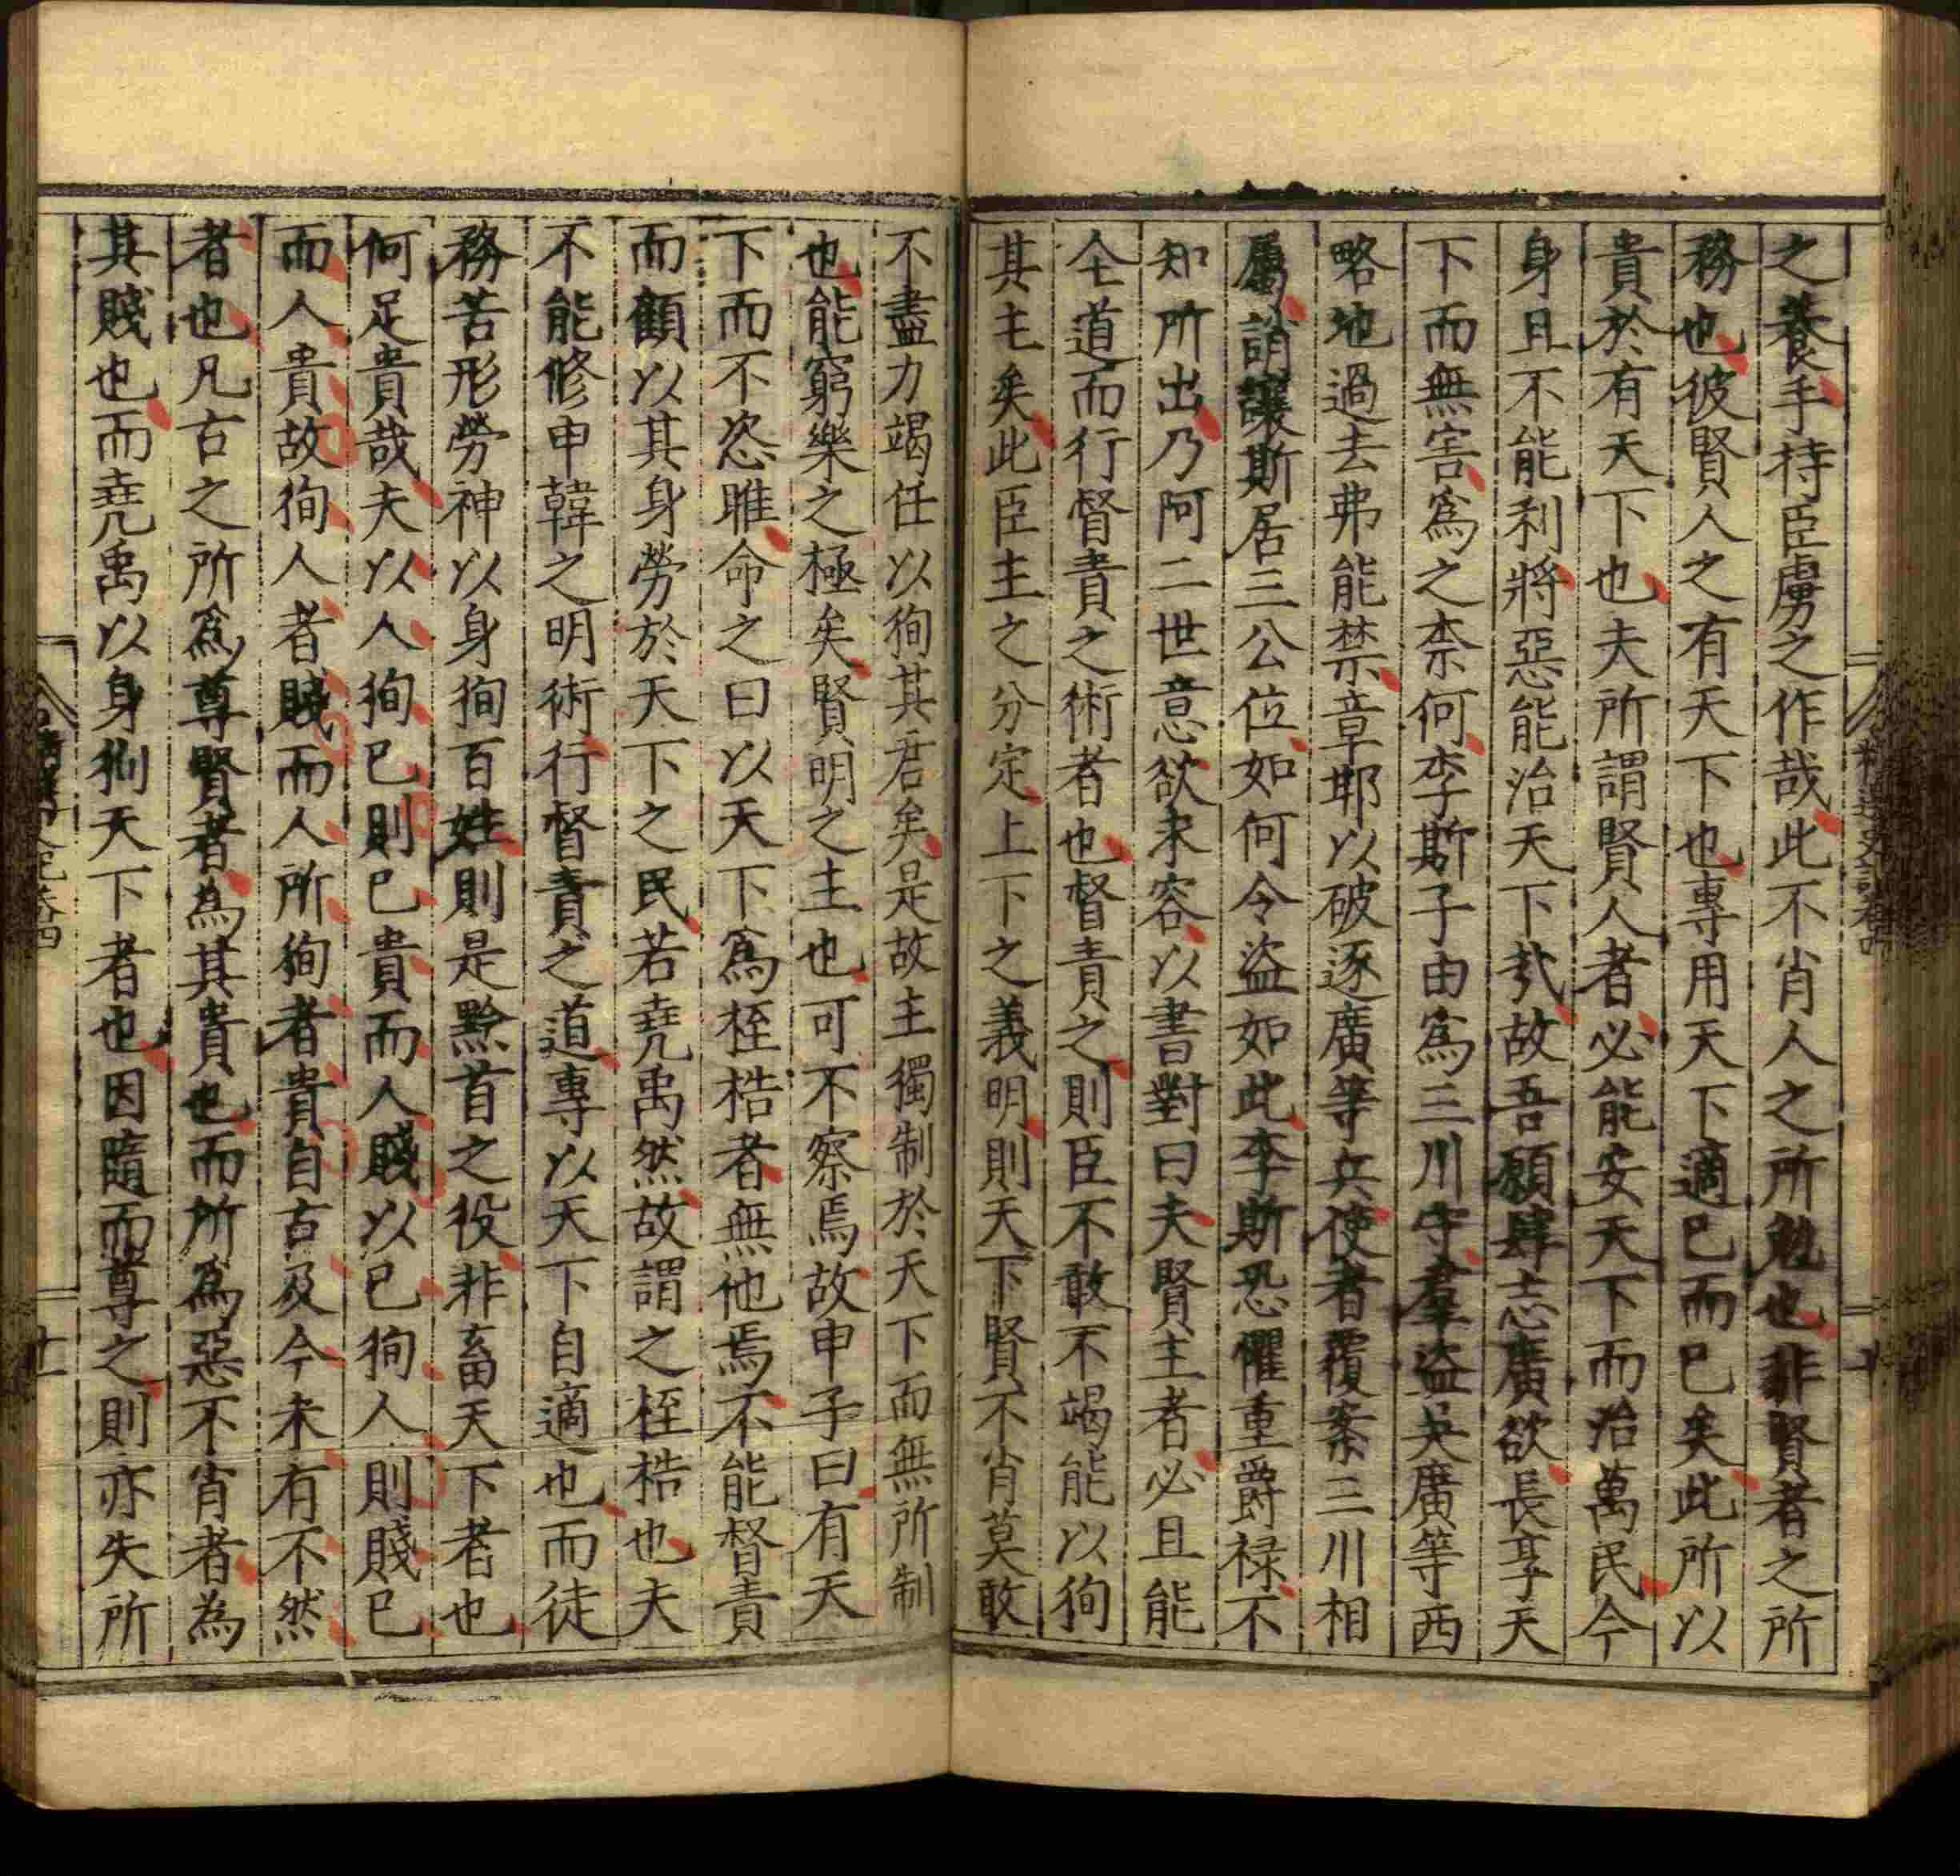 之養手持臣虜之作哉此不肖人之所勉也非賢者之所
務也彼賢人之有天下也專用天下適已而已矣此所以
貴於有天下也夫所謂賢人者必能安天下而治萬民今
身且不能利將惡能治天下㢤故吾願肆志廣欲長享天
下而無害爲之柰何李斯子由爲三川守羣盜吳廣等西
略地過去弗能禁章邯以破逐廣等兵使者覆案三川相
屬誚讓斯居三公位如何令盜如此李斯恐懼重爵祿不
知所出乃阿二世意欲求容以書對曰夫賢主者必且能
全道而行督責之術者也督責之則臣不敢不竭能以狥
其主矣此臣主之分定上下之義明則天下賢不肖莫敢
不盡力竭任以狥其君矣是故主獨制於天下而無所制
也能窮樂之極矣賢明之主也可不察焉故申子曰有天
下而不恣睢命之曰以天下爲桎梏者無他焉不能督責
而顧以其身勞於天下之民若堯禹然故謂之桎梏也夫
不能修申韓之明術行督責之道專以天下自適也而徒
務苦形勞神以身狥百姓則是黔首之役非畜天下者也
何足貴哉夫以人狥已則已貴而人賤以已狥人則賤已
而人貴故狥人者賤而人所狥者貴自古及今未有不然
者也凡古之所爲尊賢者為其貴也而所爲惡不肖者為
其賤也而堯禹以身狥天下者也因隨而尊之則亦失所